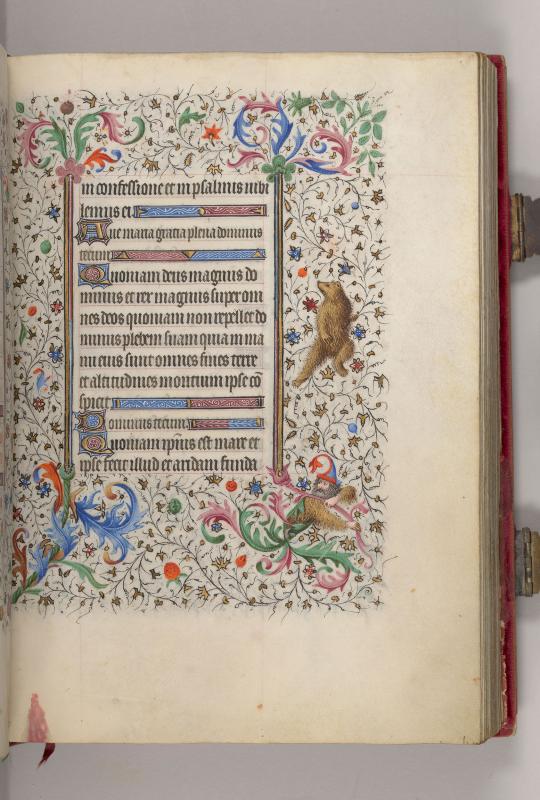 in confessione et in psalmis iubi
lemus ei
Aue maria gracia plena dominus
tecum
Quoniam deus magnus do
minus et rex magnus super om
nes deos quoniam non repellet do
minus plebem suam quia in ma
nu eius sunt omnes fines terre
et altitudines moncium ipse cō
spicit
Dominus tecum
Quoniam ip̄ius est mare et
ipse fecit illud et aridam funda